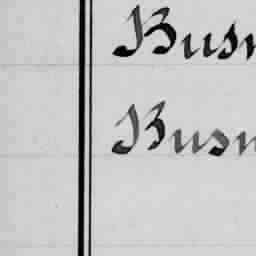 Busn
Busn